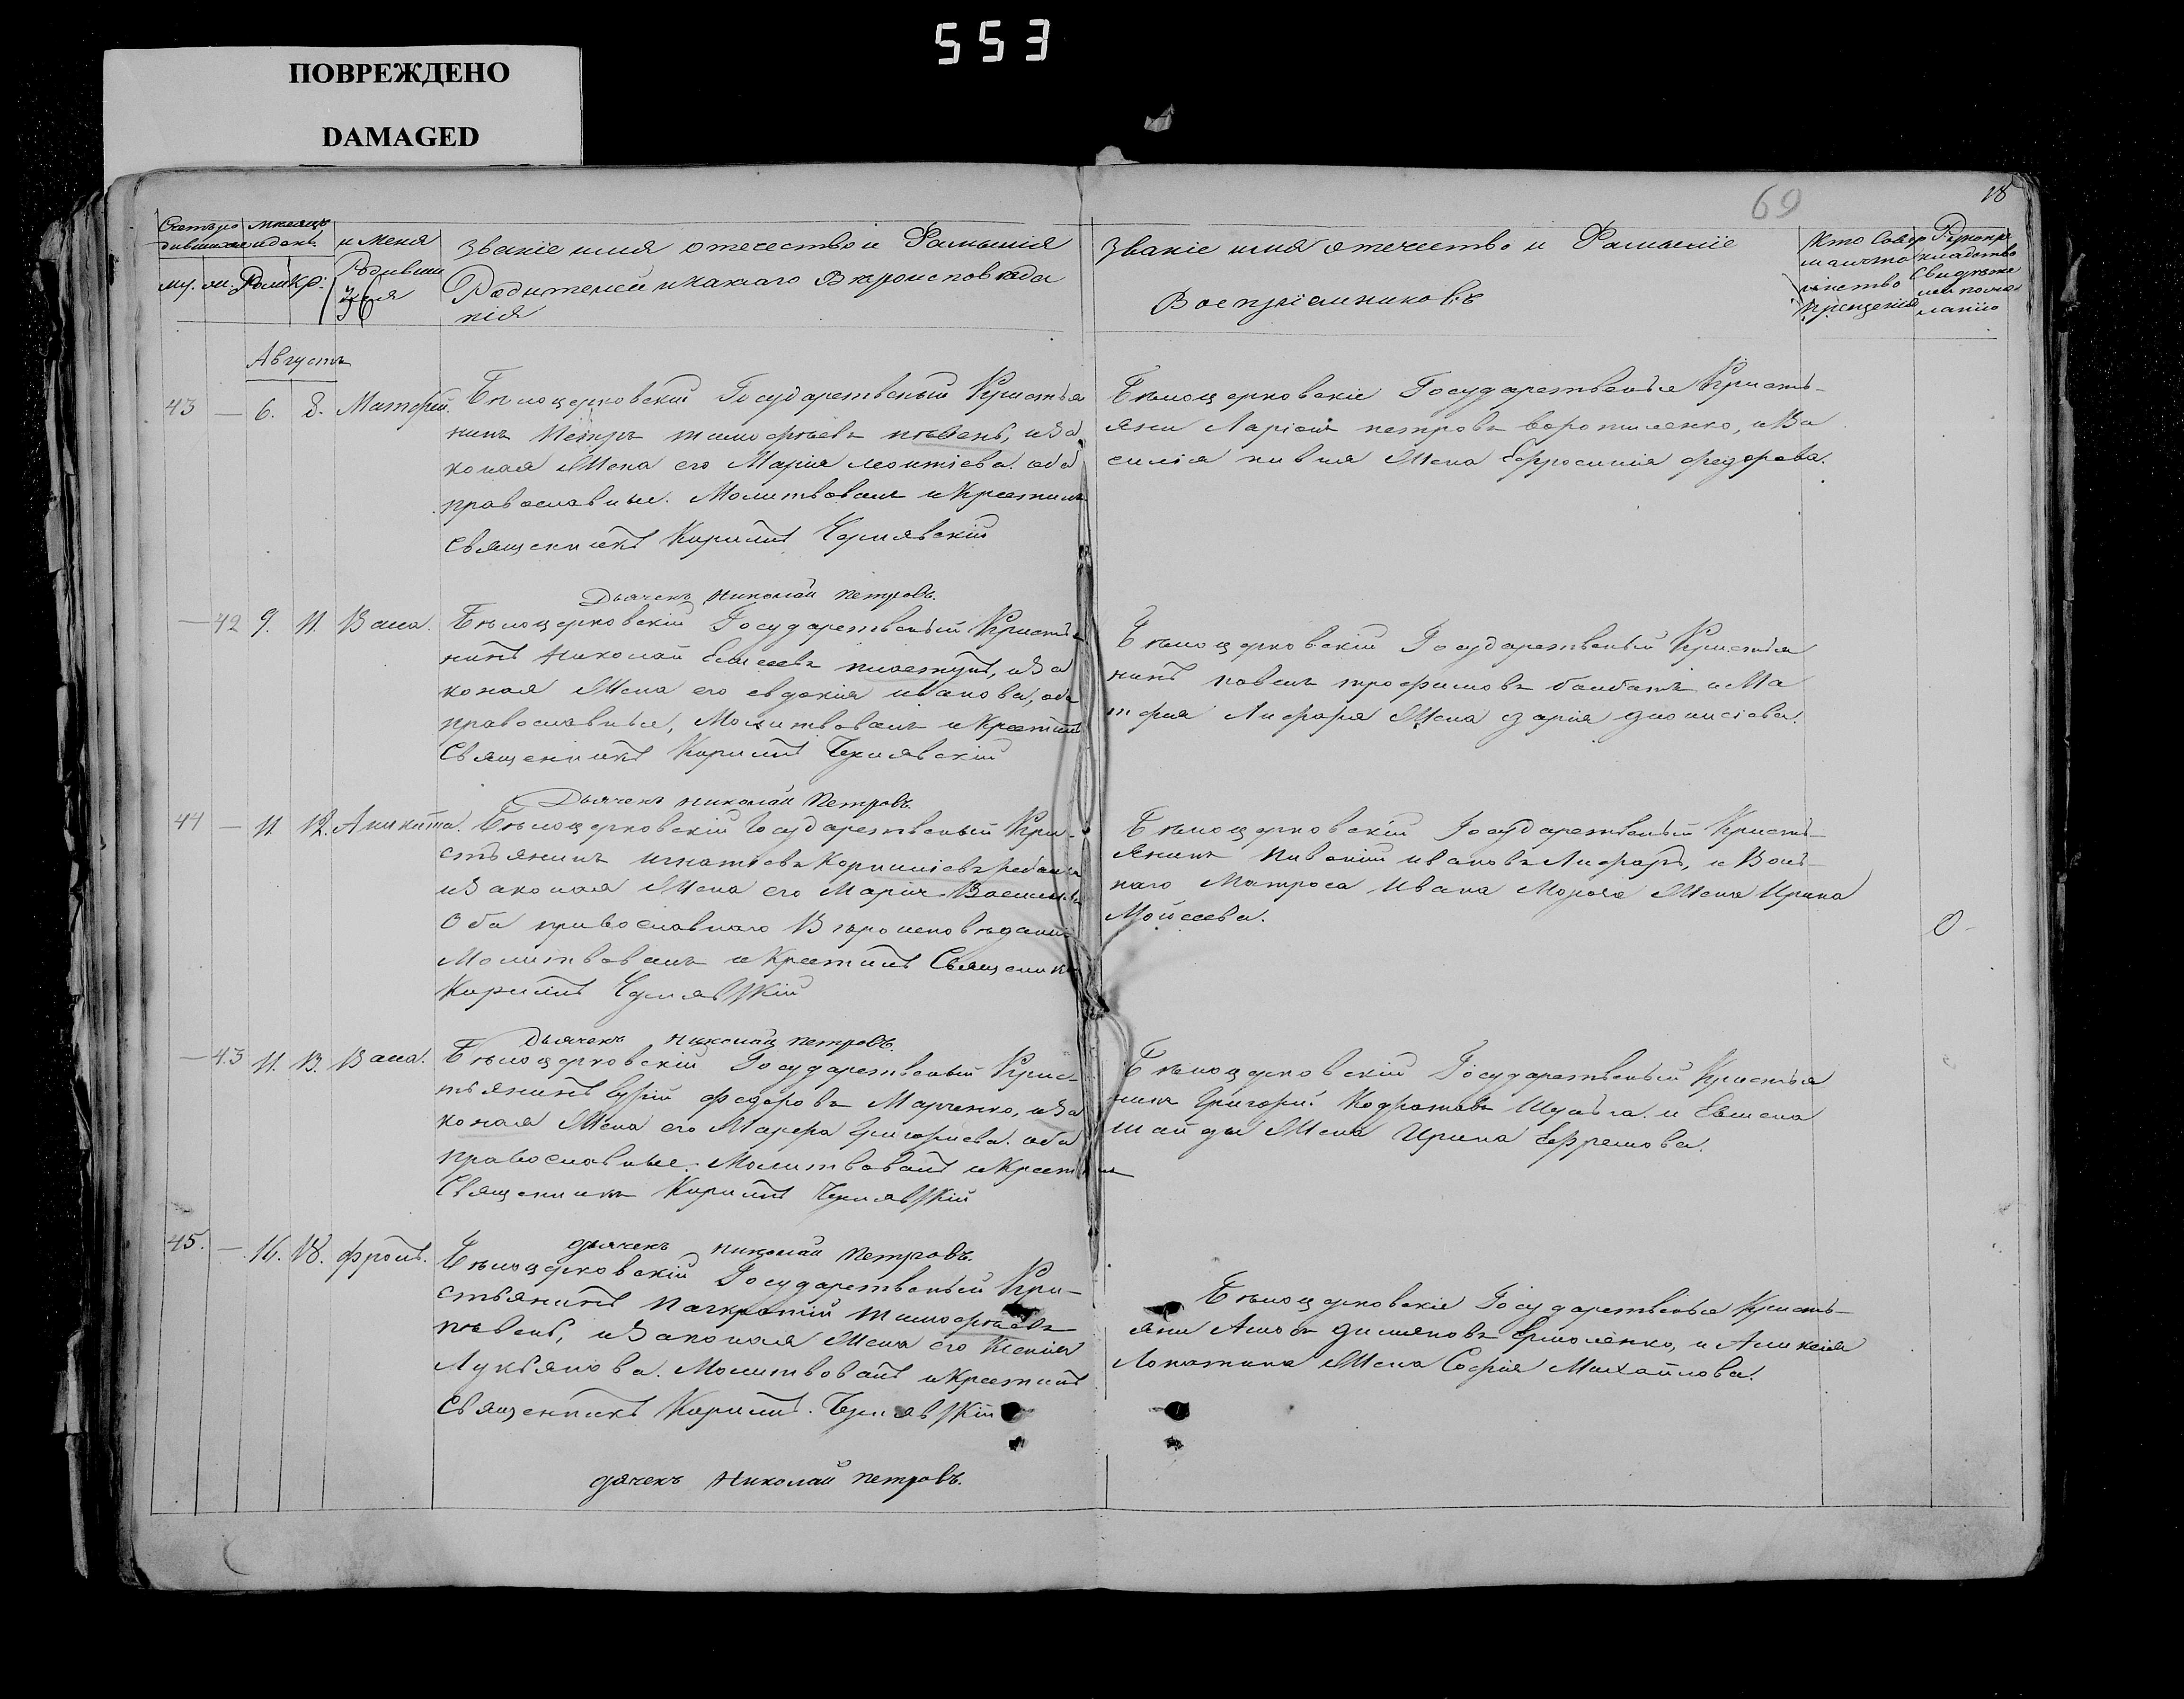 553
ПОВРЕЖДЕНО
DAMAGED
69
18
Счетъ ро
дившихся
мѣсяцъ
и день
имена
Родивши
хся
му. ж. Рож. Кр.
Званіе имя отечество и Фамилія
Родителей и какаго Вѣроисповѣда
нія
Званіе имя отечество и Фамиліе
Воспріемниковъ
Кто Совер
шалъ та
инство
Крещенія
Рукопри
кладство
Свидѣте
лей по же
ланію
Августъ
43 — 6. 8. Матфей. Бѣлоцерковскій Государственый Крестья
нинъ Петръ тимофѣевъ пѣвень, и За
коная Жена его Марія леонтіева. оба
православные. Молитвовалъ и Крестилъ
Священикъ Кирилъ Чернявскій
Дьячекъ николай петровъ.
Бѣлоцерковскіе Государственые Кресть-
яни Ларіонъ петровъ ворониленко, и Ва
силія Жена Ефросинія федорова.
— 42 9. 11. Васса. Бѣлоцерковскій Государственый Крестья
нинъ Николай Елисеевъ пластунъ, и За
коная Жена его евдокія иванова, оба
православные, Молитвовалъ и Крестилъ
Священикъ Кирилъ Чернявскій
Дьячекъ николай петровъ.
Бѣлоцерковскій Государственый Крестья
нинъ павелъ трофимовъ и Ма
тфія Лифаря Жена дарія діонисіева.
44 — 11. 12. Аникита. Бѣлоцерковскій Государственый Кре-
стьянинъ игнатіевъ Корниліевъ
и Законая Жена его Марія Васильева
Оба православнаго Вѣроисповѣданія
Молитвовалъ и Крестилъ Священикъ
Кирилъ Чернявскій
Дьячекъ николай петровъ.
Бѣлоцерковскій Государственый Кресть-
янинъ ивановъ Лифарь, и Воен-
наго Матроса Ивана Мороза Жена Ирина
Мойсеева.
— 43 11. 13. Васса. Бѣлоцерковскій Государственый Крес-
тьянинъ федоровъ Марченко, и За
коная Жена его Марфа григориева. оба
православные. Молитвовалъ и Крестилъ
Священикъ Кирилъ Чернявскій
дьячекъ николай петровъ.
Бѣлоцерковскій Государственый Крестья
нинъ григорій Кодратовъ и Евмена
шайды Жена Ирина Ефремова.
45. — 16. 18. фролъ. Бѣлоцерковскій Государственый Кре-
стьянинъ панкратій тимофѣевъ
пѣвень, и Законая Жена его Ксенія
Лукьянова. Молитвовалъ и Крестилъ
Священикъ Кирилъ Чернявскій
дячекъ Николай петровъ.
Бѣлоцерковскіе Государственые Кресть-
яни Амосъ демяновъ Ермоленко, и Алексія
Лопатина Жена Софія Михайлова.